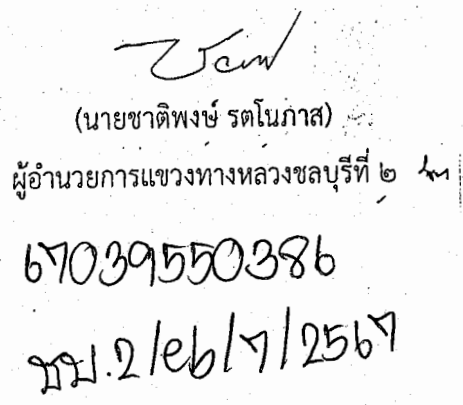 (นายชาติพงษ์ รตโนภาส)
ผู้อำนวยการแขวงทางหลวงชลบุรีที่ ๒
67039550386
ชบ.2/eb/7/2567